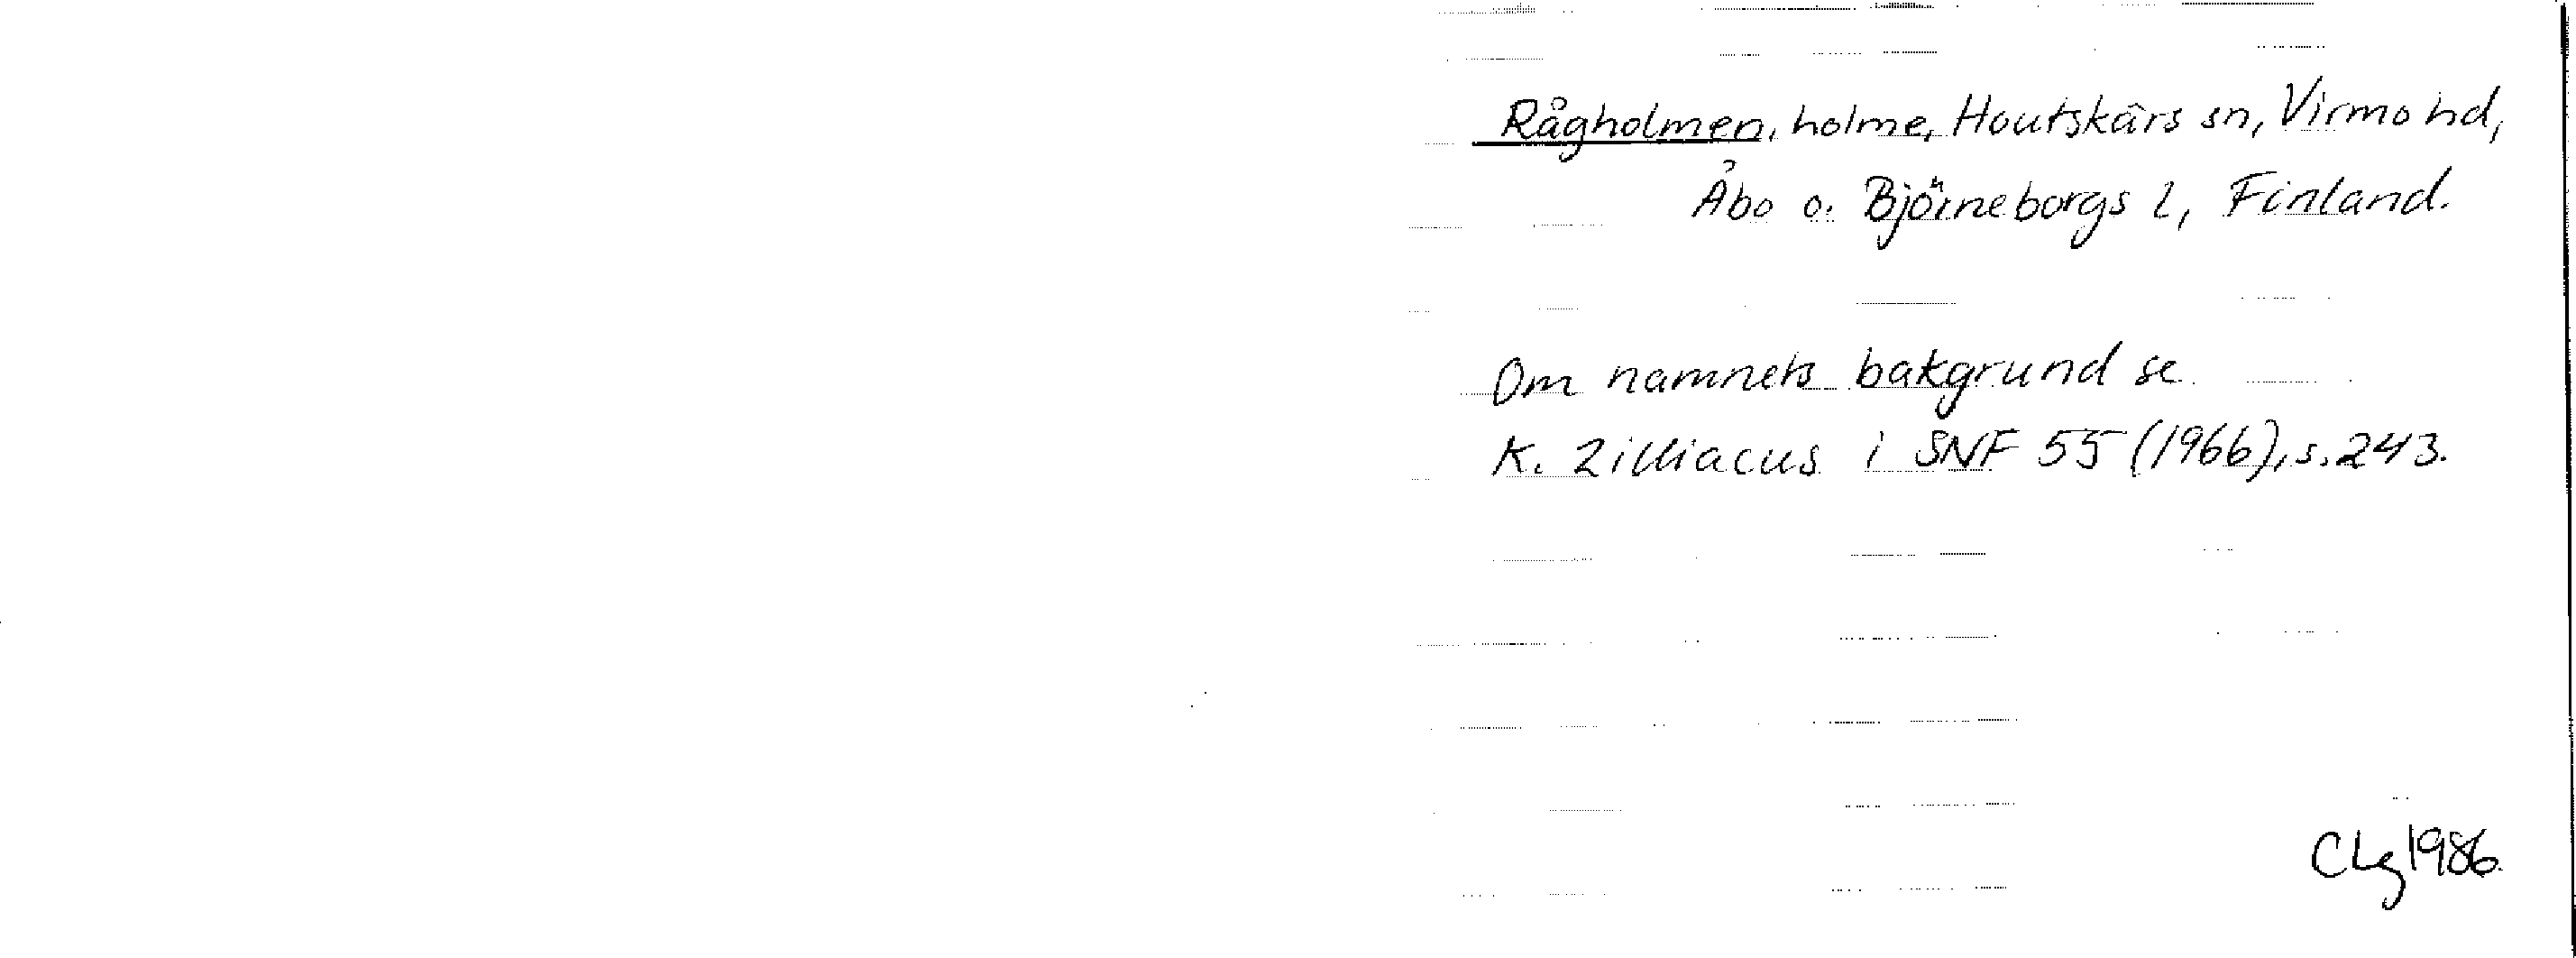 Rågholmen, holme, Houtskärs sn, Virmo hd,
Åbo o. Björneborgs l, Finland.
Om namnets bakgrund se
K. Zilliacus i SNF 55 (1966), s. 243.
CLg 1986.